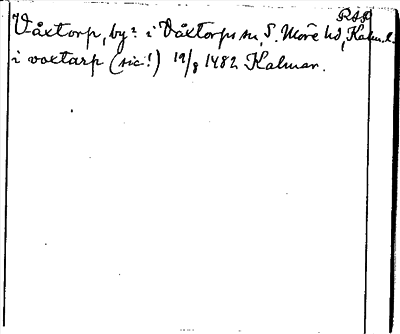 RAP
Våxtorp, by? i Våxtorps sn, S. Möre hd, Kalm. l.
i voxtarp (sic!) 19/8 1482 Kalmar.